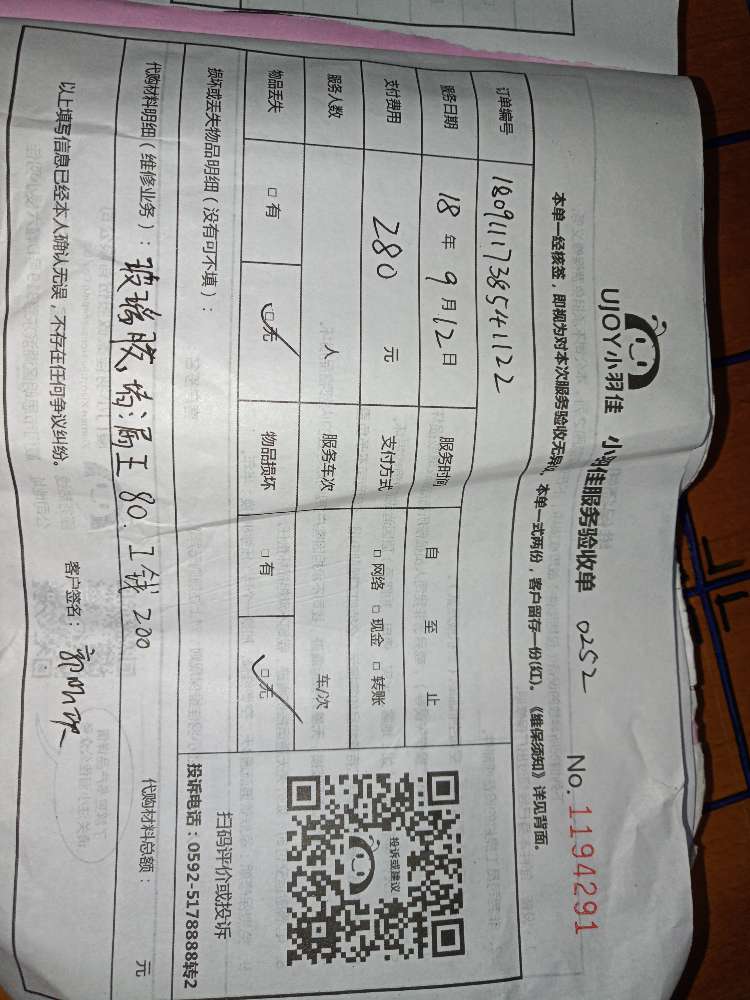 UJOY小羽佳 小羽佳服务验收单 0252 No.1194291
本单一经核签，即视为对本次服务验收无异，本单一式两份，客户留存一份(红)。《维保须知》详见背面。
订单编号 1809111738541122
服务日期 18年9月12日 服务时间 自 至 止
支付费用 280 元 支付方式 □网络 □现金 □转账
服务人数 人 服务车次 车/次
物品丢失 □有 □无 物品损坏 □有 □无
损坏或丢失物品明细（没有可不填）：
投诉或建议
扫码评价或投诉
投诉电话：0592-5178888转2
代购材料明细（维修业务）：玻璃胶，堵漏王80.工钱200 代购材料总额： 元
以上填写信息已经本人确认无误，不存在任何争议纠纷。 客户签名：